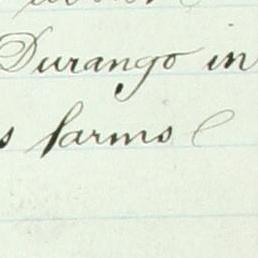 Durango in
s farms